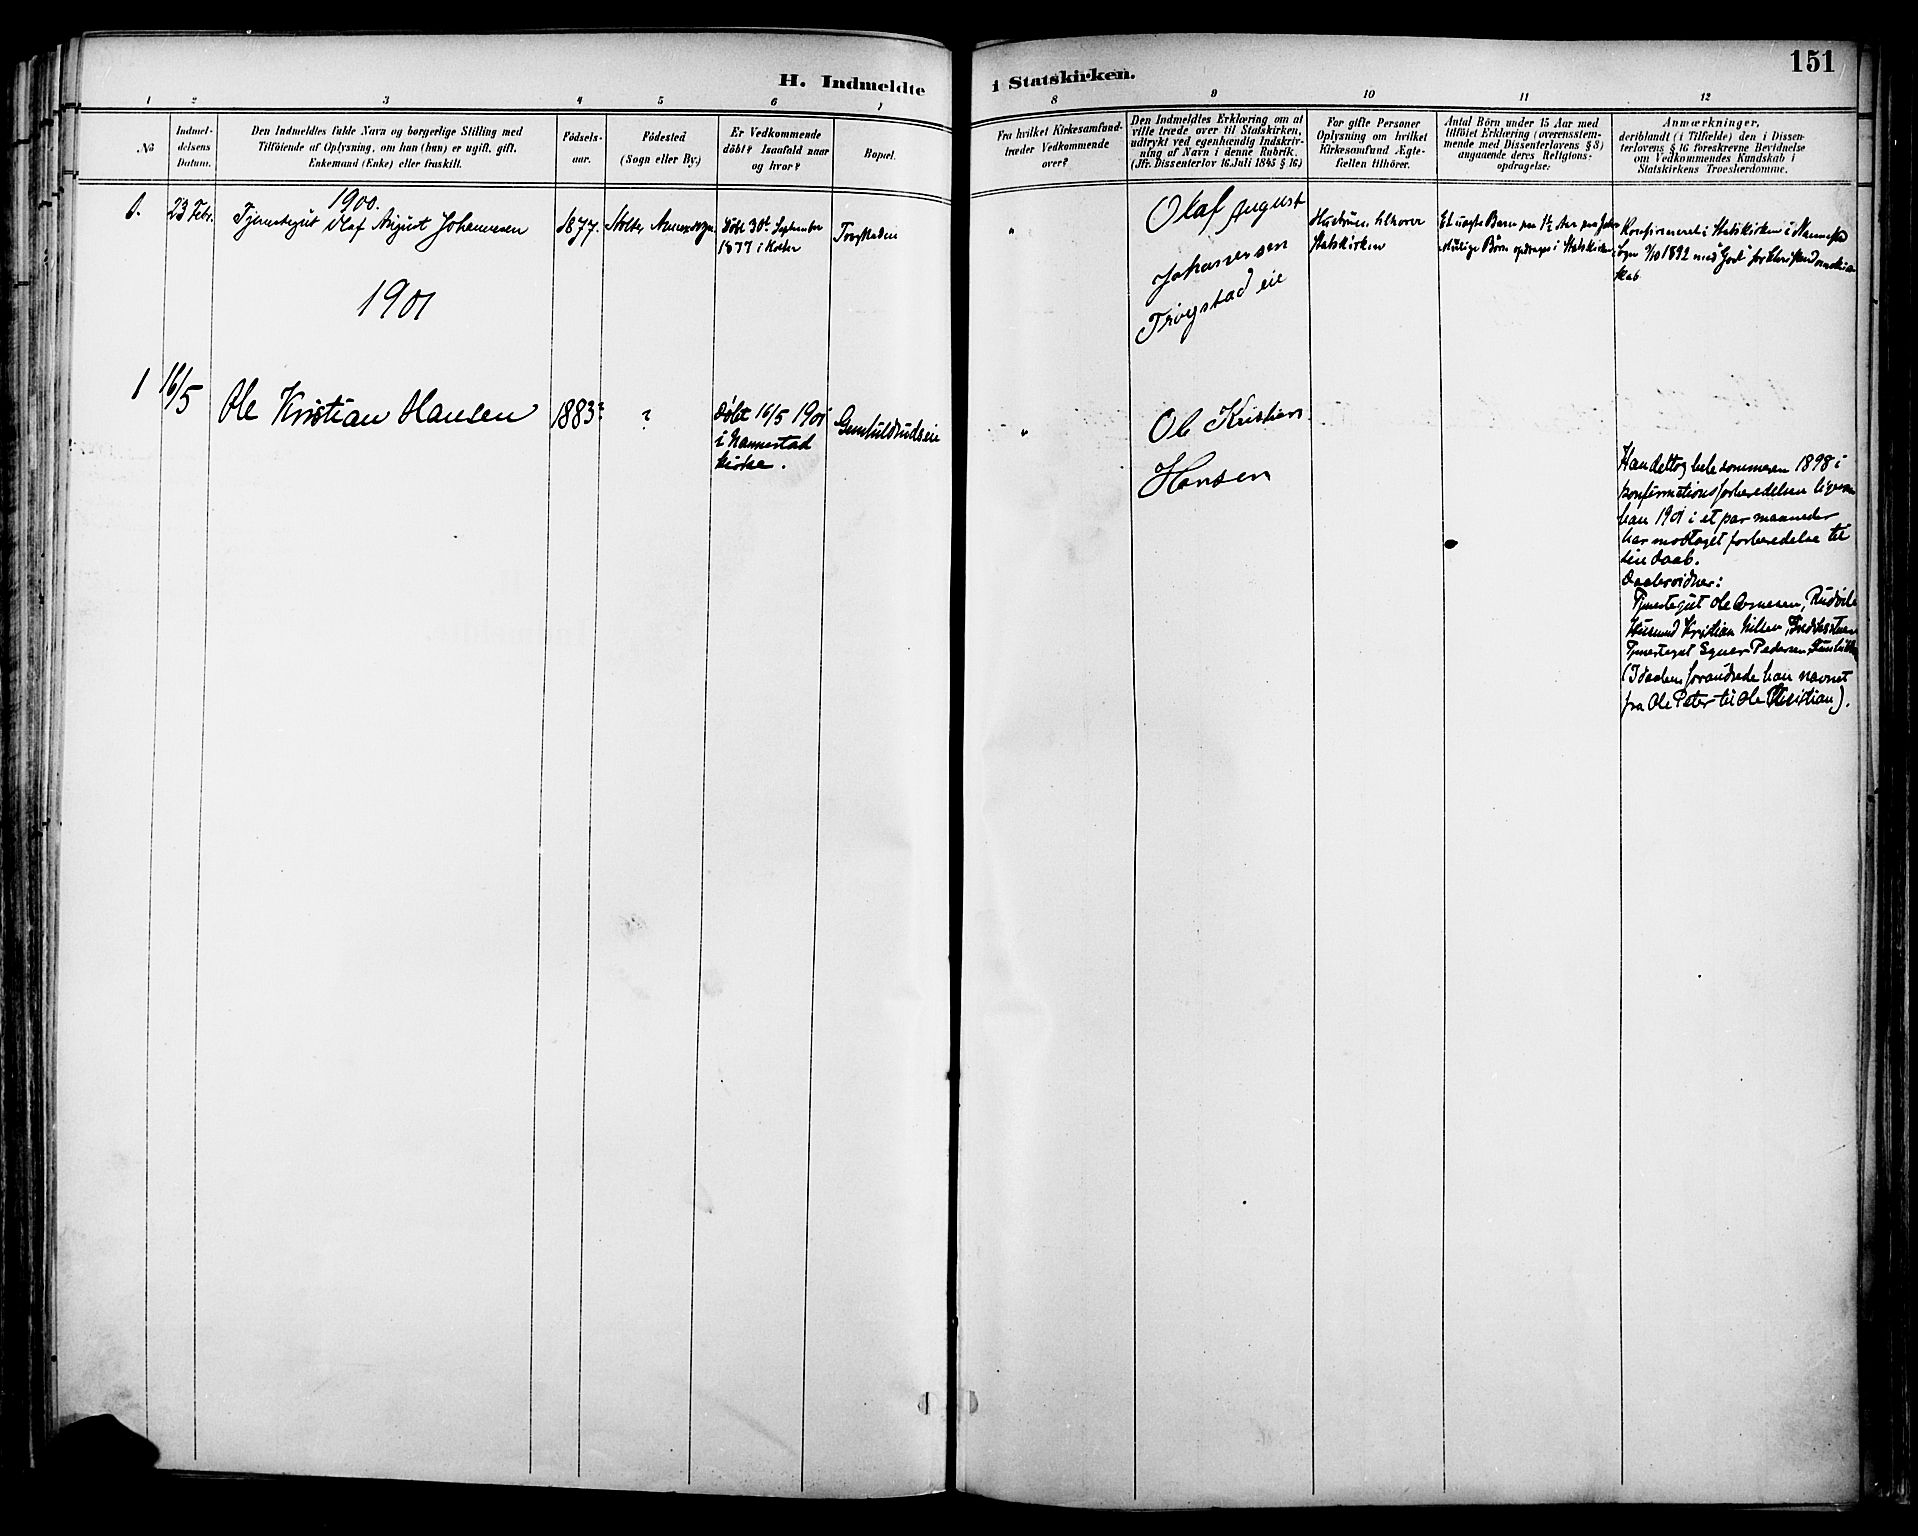 H. Indmeldte i Statskirken.
151
1 2 3 4 5 6 7 8 9 10 11 12
No
Indmel-
delsens
Datum.
Den Indmeldtes fulde Navn og borgerlige Stilling med
Tilföiende af Oplysning, om han (hun) er ugift, gift,
Enkemand (Enke) eller fraskilt.
Födsels-
aar.
Födested
(Sogn eller By.)
Er Vedkommende
döbt? Isaafald naar
og hvor?
Bopæl.
Fra hvilket Kirkesamfund
træder Vedkommende
over?
Den Indmeldtes Erklæring om at
ville træde over til Statskirken,
udtrykt ved egenhændig Indskriv-
ning af Navn i denne Rubrik.
(Jfr. Dissenterlov 16 Juli 1845 § 16.)
For gifte Personer
Oplysning om hvilket
Kirkesamfund Ægte-
fællen tilhörer.
Antal Börn under 15 Aar med
tilföiet Erklæring (overensstem-
mende med Dissenterlovens § 8)
angaaende deres Religions-
opdragelse:
Anmærkninger,
deriblandt (i Tilfælde) den i Dissen-
terlovens § 16 foreskrevne Bevidnelse
om Vedkommendes Kundskab i
Statskirkens Troeslærdomme.
1900.
1.
23 Febr.
Tjenestegut Olaf August Johannesen
1877.
Døbt 30te September
1877 i
"
Olaf August
Johannesen
Trogstad eie
Hustruen tilhører
Statskirken
Et uægte Barn paa 1½ Aar
Børn opdrages i Statskirken
Konfirmeret i Statskirken i Nannestad
Sogn 1892 med Godt for Kristendomskund-
skab
1901
1
16/5
Ole Kristian Hansen
1883?
?
døbt 16/5 1901
i Nannestad
kirke.
"
Ole Kristian
Hansen
Han deltog hele sommeren 1898 i
konfirmationsforberedelsen ligesom
han 1901 i et par maaneder
har modtaget forberedelse til
sin daab.
Daabsvidner:
Tjenestegut Ole Arnesen,
Husmand Kristian Nilsen
Tjenestegut Pedersen
(I daaben forandrede han navnet
fra Ole Peter til Ole Kristian).